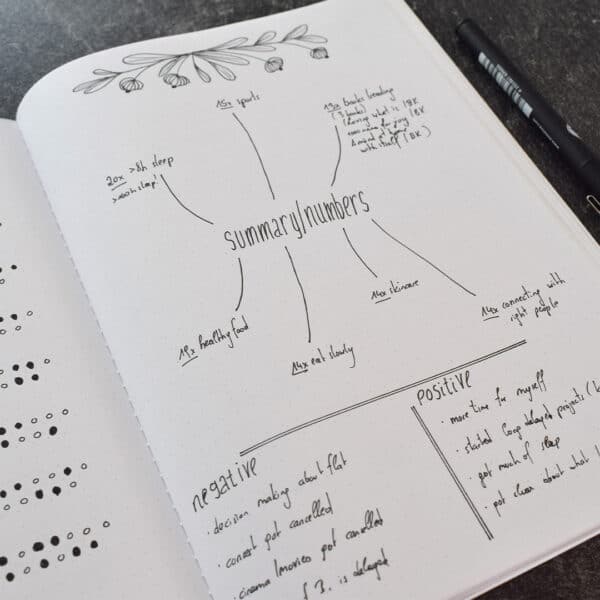 15x sports
19x books reading
(3 books)
(loving what is | BK
with itself | BK)
20x >8h sleep
>160h sleep!
summary/numbers
14x skincare
14x connecting with
right people
19x healthy food
14x eat slowly
positive
· more time for myself
· started long delayed projects (
· got much of sleep
· got clear about what I
negative
· decision making about flat
· concert got cancelled
· cinema/movies got cancelled
3. is delayed